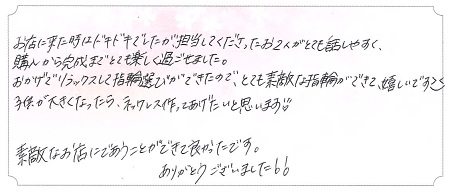 お店に来た時はドキドキでしたが担当してくださったお2人がとても話しやすく、
購入から完成までとても楽しく過ごせました。
おかげでリラックスして指輪選びができたので、とても素敵な指輪ができて、嬉しいです
子供が大きくなったら、ネックレス作ってあげたいと思います!!
素敵なお店にであうことができて良かったです。
ありがとうございました!!